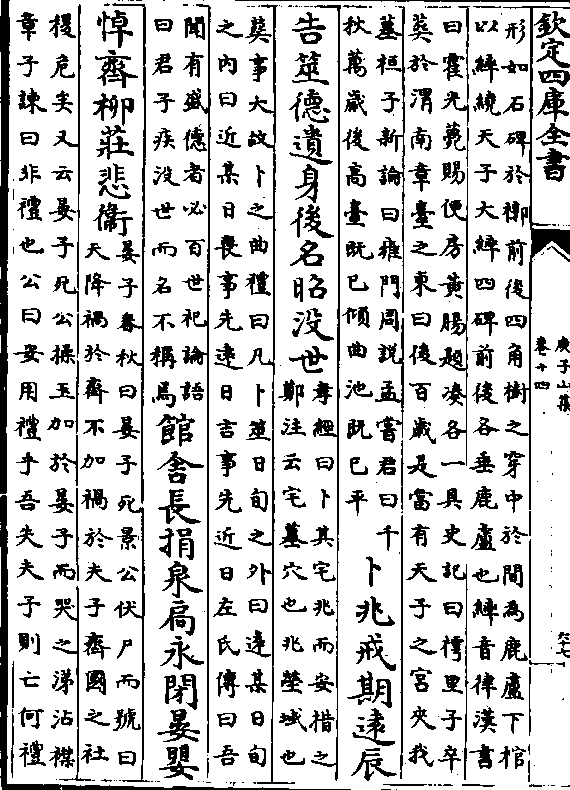 欽定四庫全書
庾子山集
卷十四
形如石碑於槨前後四角樹之穿中於間為鹿盧下棺
以繂繞天子大繂四碑前後各垂鹿盧也繂音律漢書
曰霍光薨賜便房黃腸題湊各一具史記曰樗里子卒
葬於渭南章臺之東曰後百歲是當有天子之宮夾我
墓桓子新論曰雍門周說孟嘗君曰千
秋萬歲後高臺既已傾曲池既已平
卜兆戒期逺辰
告筮德遺身後名昭没世
孝經曰卜其宅兆而安措之
鄭注云宅墓穴也兆塋域也
葬事大故卜之曲禮曰凡卜筮日旬之外曰逺某日旬
之内曰近某日喪事先逺日吉事先近日左氏傳曰吾
聞有盛德者必百世祀論語
曰君子疾没世而名不稱焉
館舍長捐泉扃永閉晏嬰
悼齊柳莊悲衞
晏子春秋曰晏子死景公伏尸而號曰
天降禍於齊不加禍於夫子齊國之社
稷危矣又云晏子死公操玉加於晏子而哭之涕沾襟
章子諫曰非禮也公曰安用禮乎吾失夫子則亡何禮